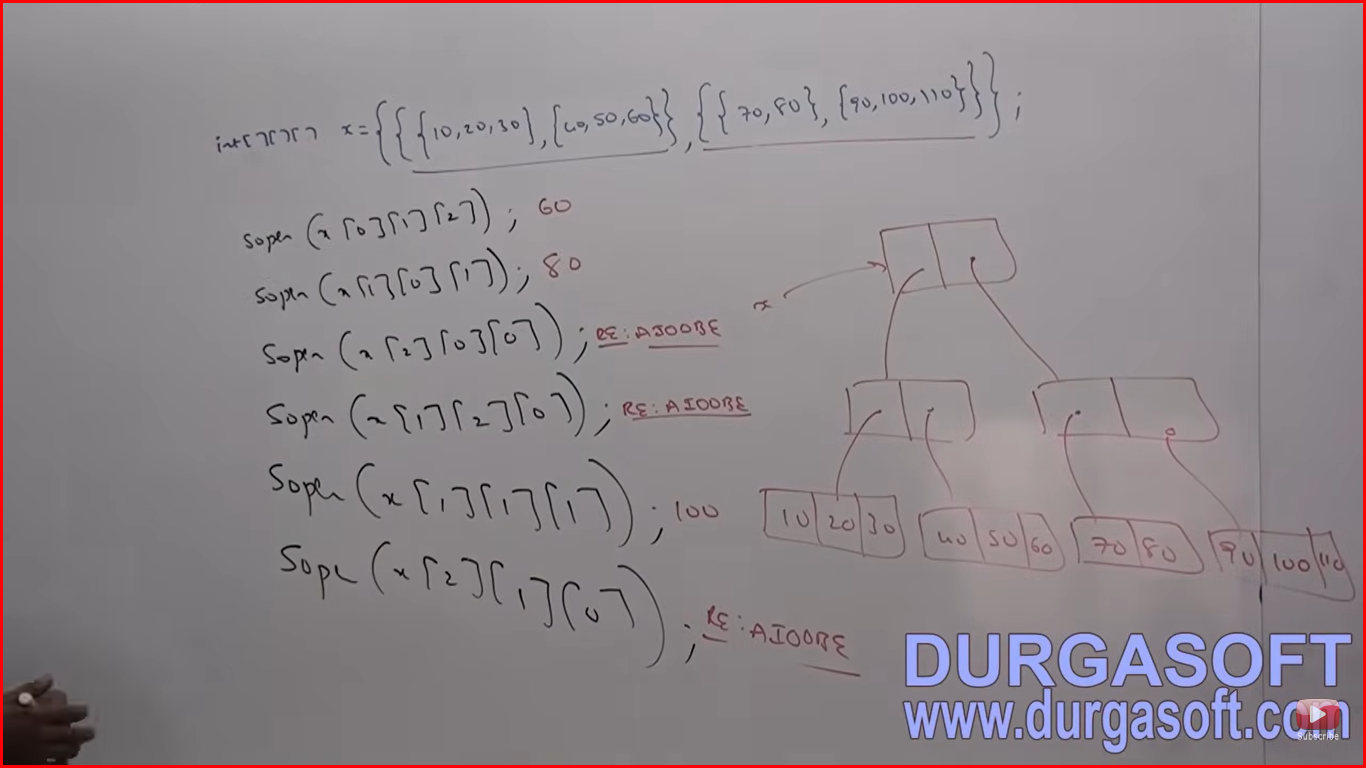 int[][][] x={{{10,20,30},{40,50,60}},{{70,80},{90,100,110}}};
Sopln(x[0][1][2]); 60
Sopln(x[1][0][1]); 80
Sopln(x[2][0][0]); RE:AIOOBE
Sopln(x[1][2][0]); RE:AIOOBE
Sopln(x[1][1][1]); 100
Sopln(x[2][1][0]); RE:AIOOBE
x
10 20 30
40 50 60
70 80
90 100 110
DURGASOFT
www.durgasoft.com
Subscribe